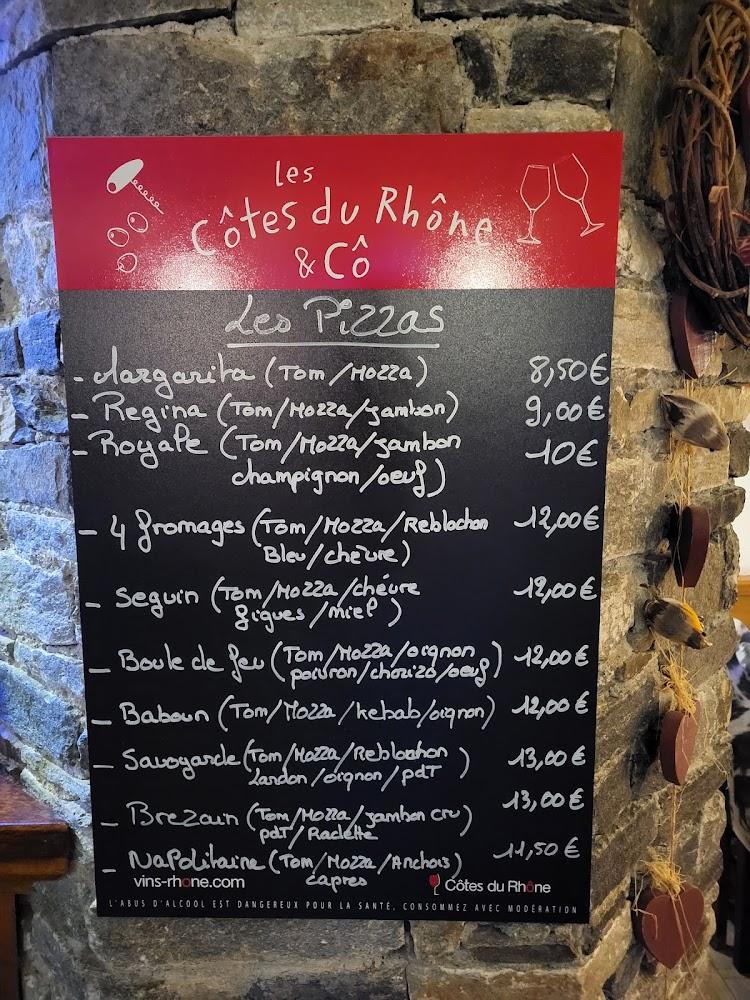 Les
Côtes du Rhône
& Cô
Les Pizzas
- Margarita (Tom/Mozza) 8,50€
- Regina (Tom/Mozza/jambon) 9,00€
- Royale (Tom/Mozza/jambon 10€
champignon/oeuf)
- 4 fromages (Tom/Mozza/Reblochon 12,00€
Bleu/chèvre)
- Seguin (Tom/Mozza/chévre 12,00€
figues/miel)
- Boule de feu (Tom/Mozza/oignon 12,00€
poivron/chorizo/oeuf)
- Baboun (Tom/Mozza/kebab/oignon) 12,00€
- Savoyarde (Tom/Mozza/Reblochon 13,00€
Lardon/oignon/pdT)
- Brezain (Tom/Mozza/jambon cru) 13,00€
pdT/Raclette
- Napolitaine (Tom/Mozza/Anchois) 11,50€
capres
vins-rhone.com Côtes du Rhône
L'ABUS D'ALCOOL EST DANGEREUX POUR LA SANTÉ, CONSOMMEZ AVEC MODÉRATION